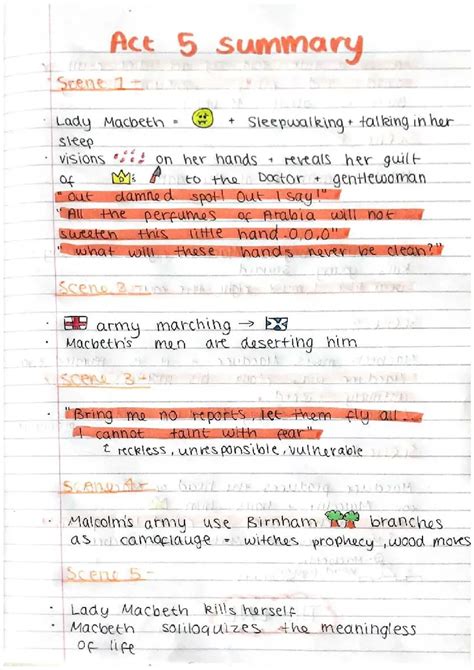 Act 5 summary
Scene 1-
· Lady Macbeth = + Sleepwalking + talking in her
sleep
· visions on her hands + reveals her guilt
of to the Doctor + gentlewoman
"Out damned spot! Out I say!"
"All the perfumes of Arabia will not
sweeten this little hand. O,O,O"
"what will these hands never be clean?"
Scene 2-
· army marching →
· Macbeth's men are deserting him
Scene 3-
· "Bring me no reports, let them fly all...
I cannot taint with fear"
reckless, unresponsible, vulnerable
Scene 4-
· Malcolm's army use Birnham branches
as camoflauge = witches prophecy, wood moves
Scene 5-
· Lady Macbeth kills herself
· Macbeth soliloquizes the meaningless
of life